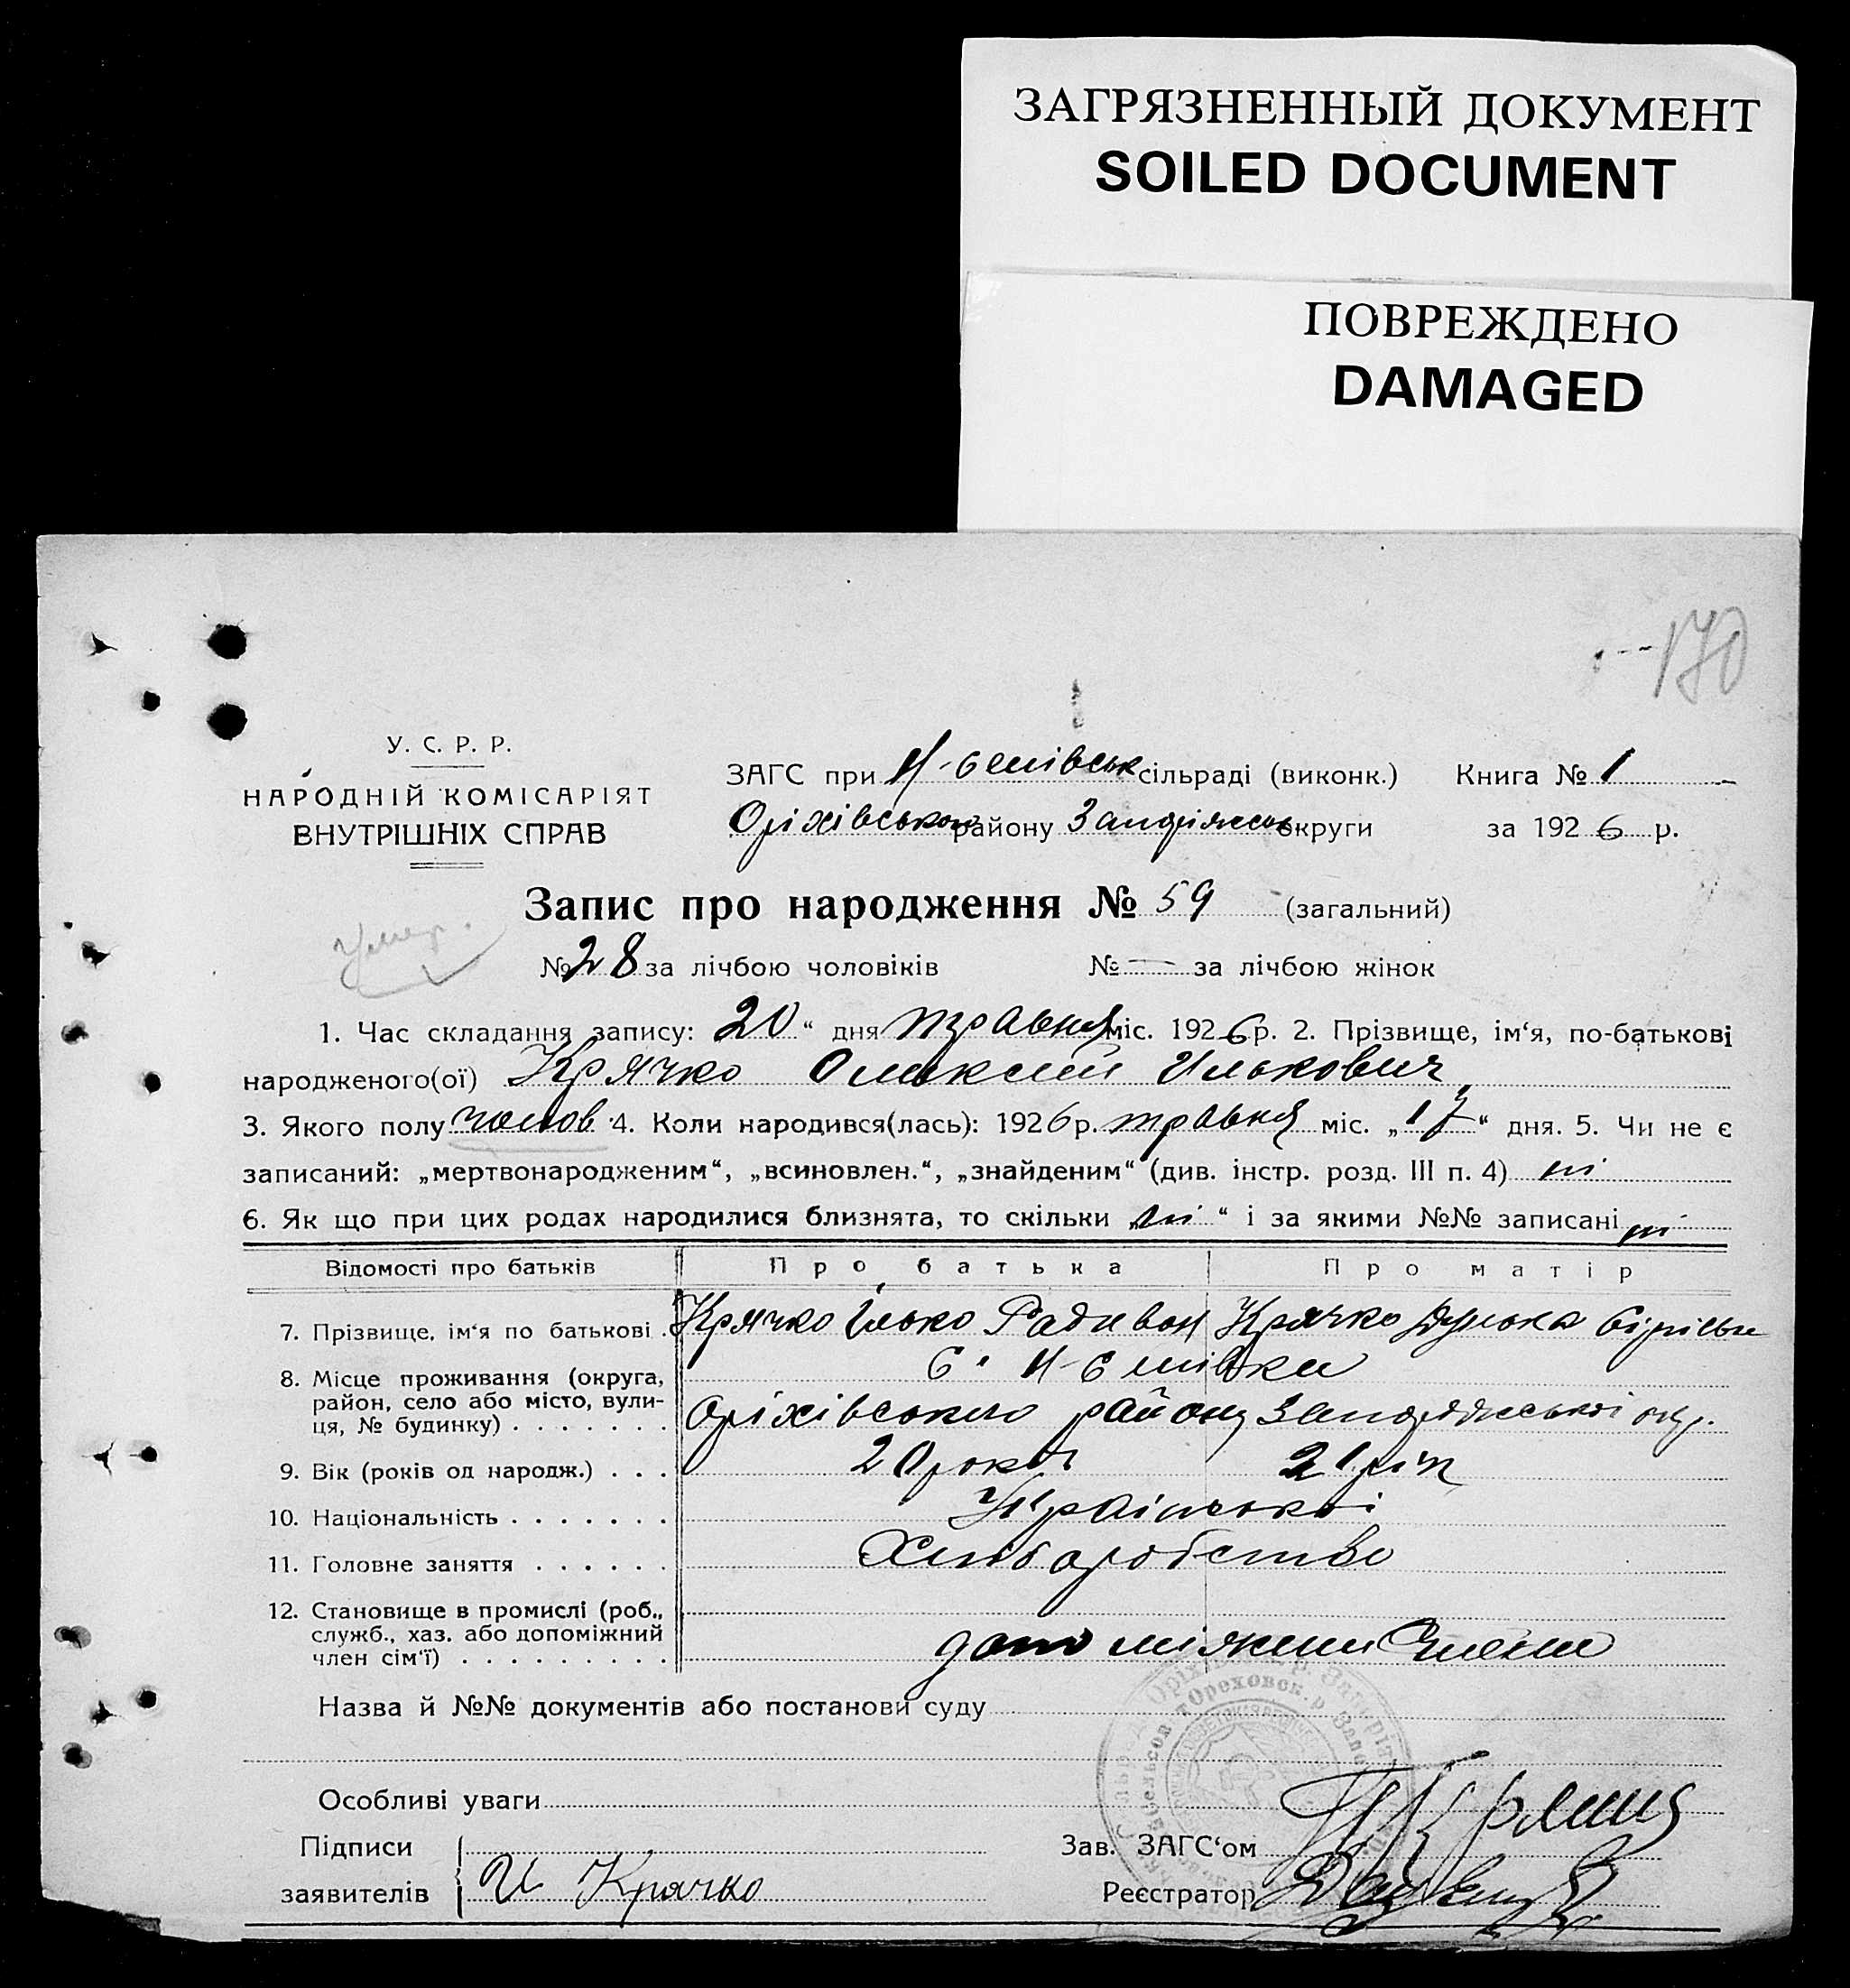 ЗАГРЯЗНЕННЫЙ ДОКУМЕНТ
SOILED DOCUMENT
ПОВРЕЖДЕНО
DAMAGED
170
У. С. Р. Р.
НАРОДНІЙ КОМІСАРІЯТ
ВНУТРІШНІХ СПРАВ
ЗАГС при сільраді (виконк.) Книга № 1
Оріхівського району Запоріжськ округи за 1926 р.
Запис про народження № 59 (загальний)
Умер.
№ 28 за лічбою чоловіків № — за лічбою жінок
1. Час складання запису: 20 “ дня травня міс. 1926 р. 2. Прізвище, ім‘я, по-батькові
народженого(ої) Крячко Олексій Илькович
3. Якого полу чолов 4. Коли народився(лась): 1926 р. травня міс. „17“ дня. 5. Чи не є
записаний: „мертвонародженим“, „всиновлен.“, „знайденим“ (див. інстр. розд. III п. 4) ні
6. Як що при цих родах народилися близнята, то скільки „ні“ і за якими №№ записані ні
Відомості про батьків Про батька Про матір
7. Прізвище, ім‘я по батькові . Крячко Ілько Радивон Крячко Дунька
8. Місце проживання (округа,
район, село або місто, вули-
ця, № будинку) . . . . . . . Оріхівського району Запоріжської окр.
9. Вік (років од народж.) . . . 20 років 21 рік
10. Національність . . . . . . . Українські
11. Головне заняття . . . . . . Хліборобство
12. Становище в промислі (роб.,
служб., хаз. або допоміжний
член сім‘ї) . . . . . . . . . допоміжний члени
Назва й №№ документів або постанови суду
Особливі уваги
Підписи
заявителів И Крячко
Зав. ЗАГС‘ом
Реєстратор